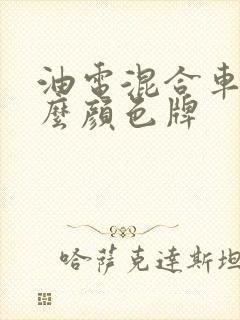 油電混合車
麼顏色牌
哈薩克達斯坦